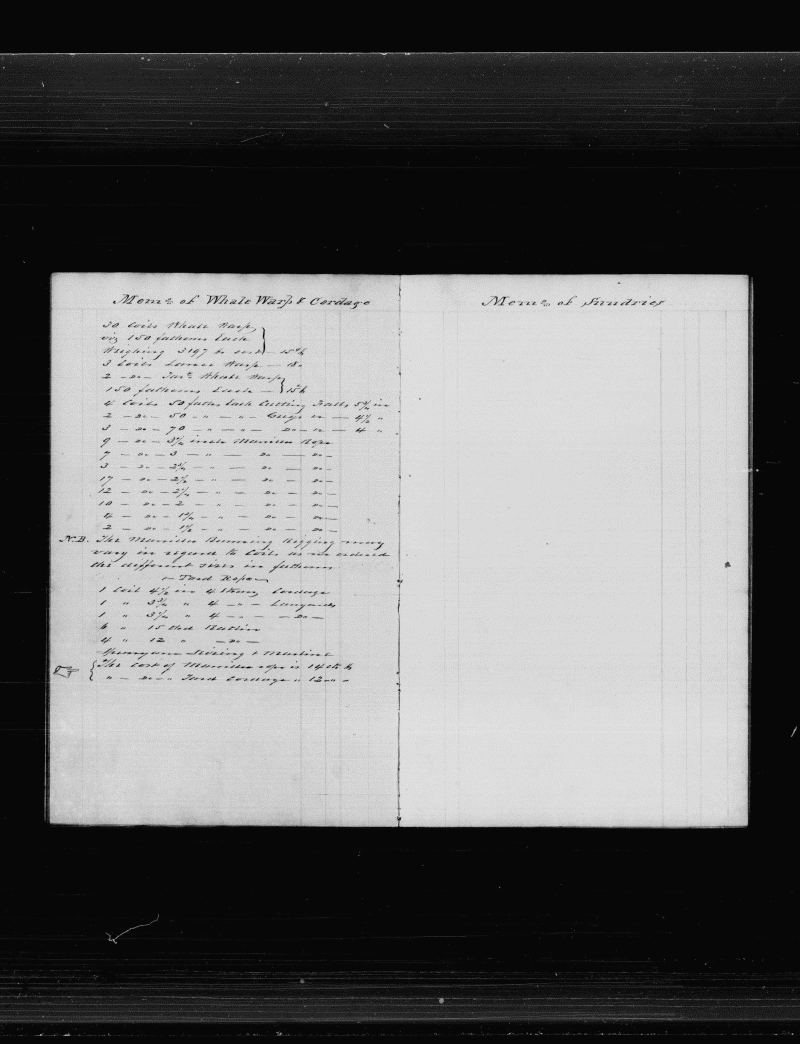 Memo of Whale Warp & Cordage
30 Coils Whale Warp
viz 150 fathoms Each
Weighing 3197 lb cost — 15
3 Coils Lance Warp — 18
2 — do — Whale Warp
150 fathoms Each —
4 Coils 50 faths Each Cutting Falls 5 in
2 — do — 50 — " — " — Guys do — 4½ "
3 — do — 70 — " — " — do — do — 4 "
9 — do — 3½ inch Manilla Rope
7 — do — 3 — " — do — do —
3 — do — 2¾ — " — do — do —
17 — do — 2½ — " — do — do —
12 — do — 2¼ — " — do — do —
10 — do — 2 — " — do — do —
4 — do — 1¾ — " — do — do —
2 — do — 1½ — " — do — do —
N.B. The Manilla Running Rigging may
vary in regard to Coils as we ordered
the different sizes in fathoms
Tard Rope
1 Coil 4½ in 4 Strang Cordage
1 " 3¾ " 4 — " — Lanyards
1 " 3½ " 4 — " — do —
" 15 thd Ratlin
4 " 12 " — do —
Spunyarn Sizing & Marline
The Cost of Manilla rope is 14 cts lb
" — do — " Tard Cordage " 12 " "
Memo of Sundries